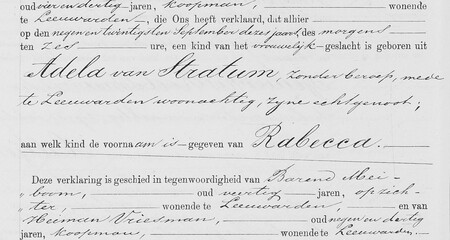 oud vier en dertig jaren, koopman, wonende
te Leeuwarden, die Ons heeft verklaard, dat alhier
op den negen en twintigsten September dezes jaars, des morgens
ten zes ure, een kind van het vrouwelijk geslacht is geboren uit
Adela van Stratum, zonder beroep, mede
te Leeuwarden woonachtig, zijne echtgenoot;
aan welk kind de voornaam is gegeven van Rabecca.
Deze verklaring is geschied in tegenwoordigheid van Barend Mei-
"boom, oud veertig jaren, opzich-
"ter, wonende te Leeuwarden, en van
Heiman Vriesman, oud negen en dertig
jaren, koopman, wonende te Leeuwarden.